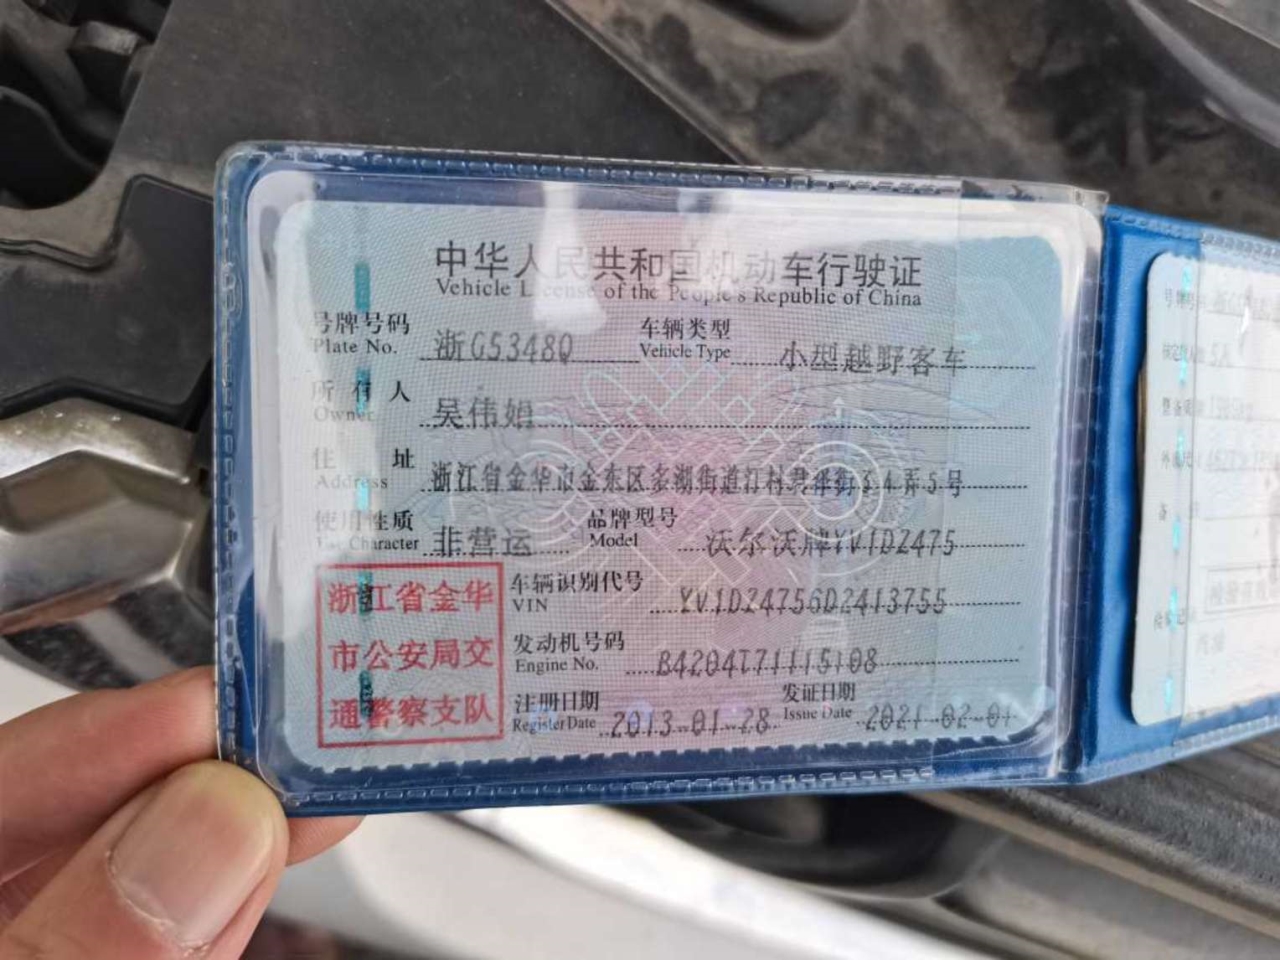 中华人民共和国机动车行驶证
Vehicle License of the People's Republic of China
号牌号码 浙G5348Q 车辆类型 小型越野客车
Plate No. Vehicle Type
所有人 吴伟娟
Owner
住址 浙江省金华市金东区多湖街道汀村君祥街34弄5号
Address
使用性质 非营运 品牌型号 沃尔沃牌YV1DZ475
Use Character Model
浙江省金华
市公安局交
通警察支队
车辆识别代号 YV1DZ4756D2413755
VIN
发动机号码 B4204T71115108
Engine No.
注册日期 2013-01-28 发证日期 2021-02-01
Register Date Issue Date
5人